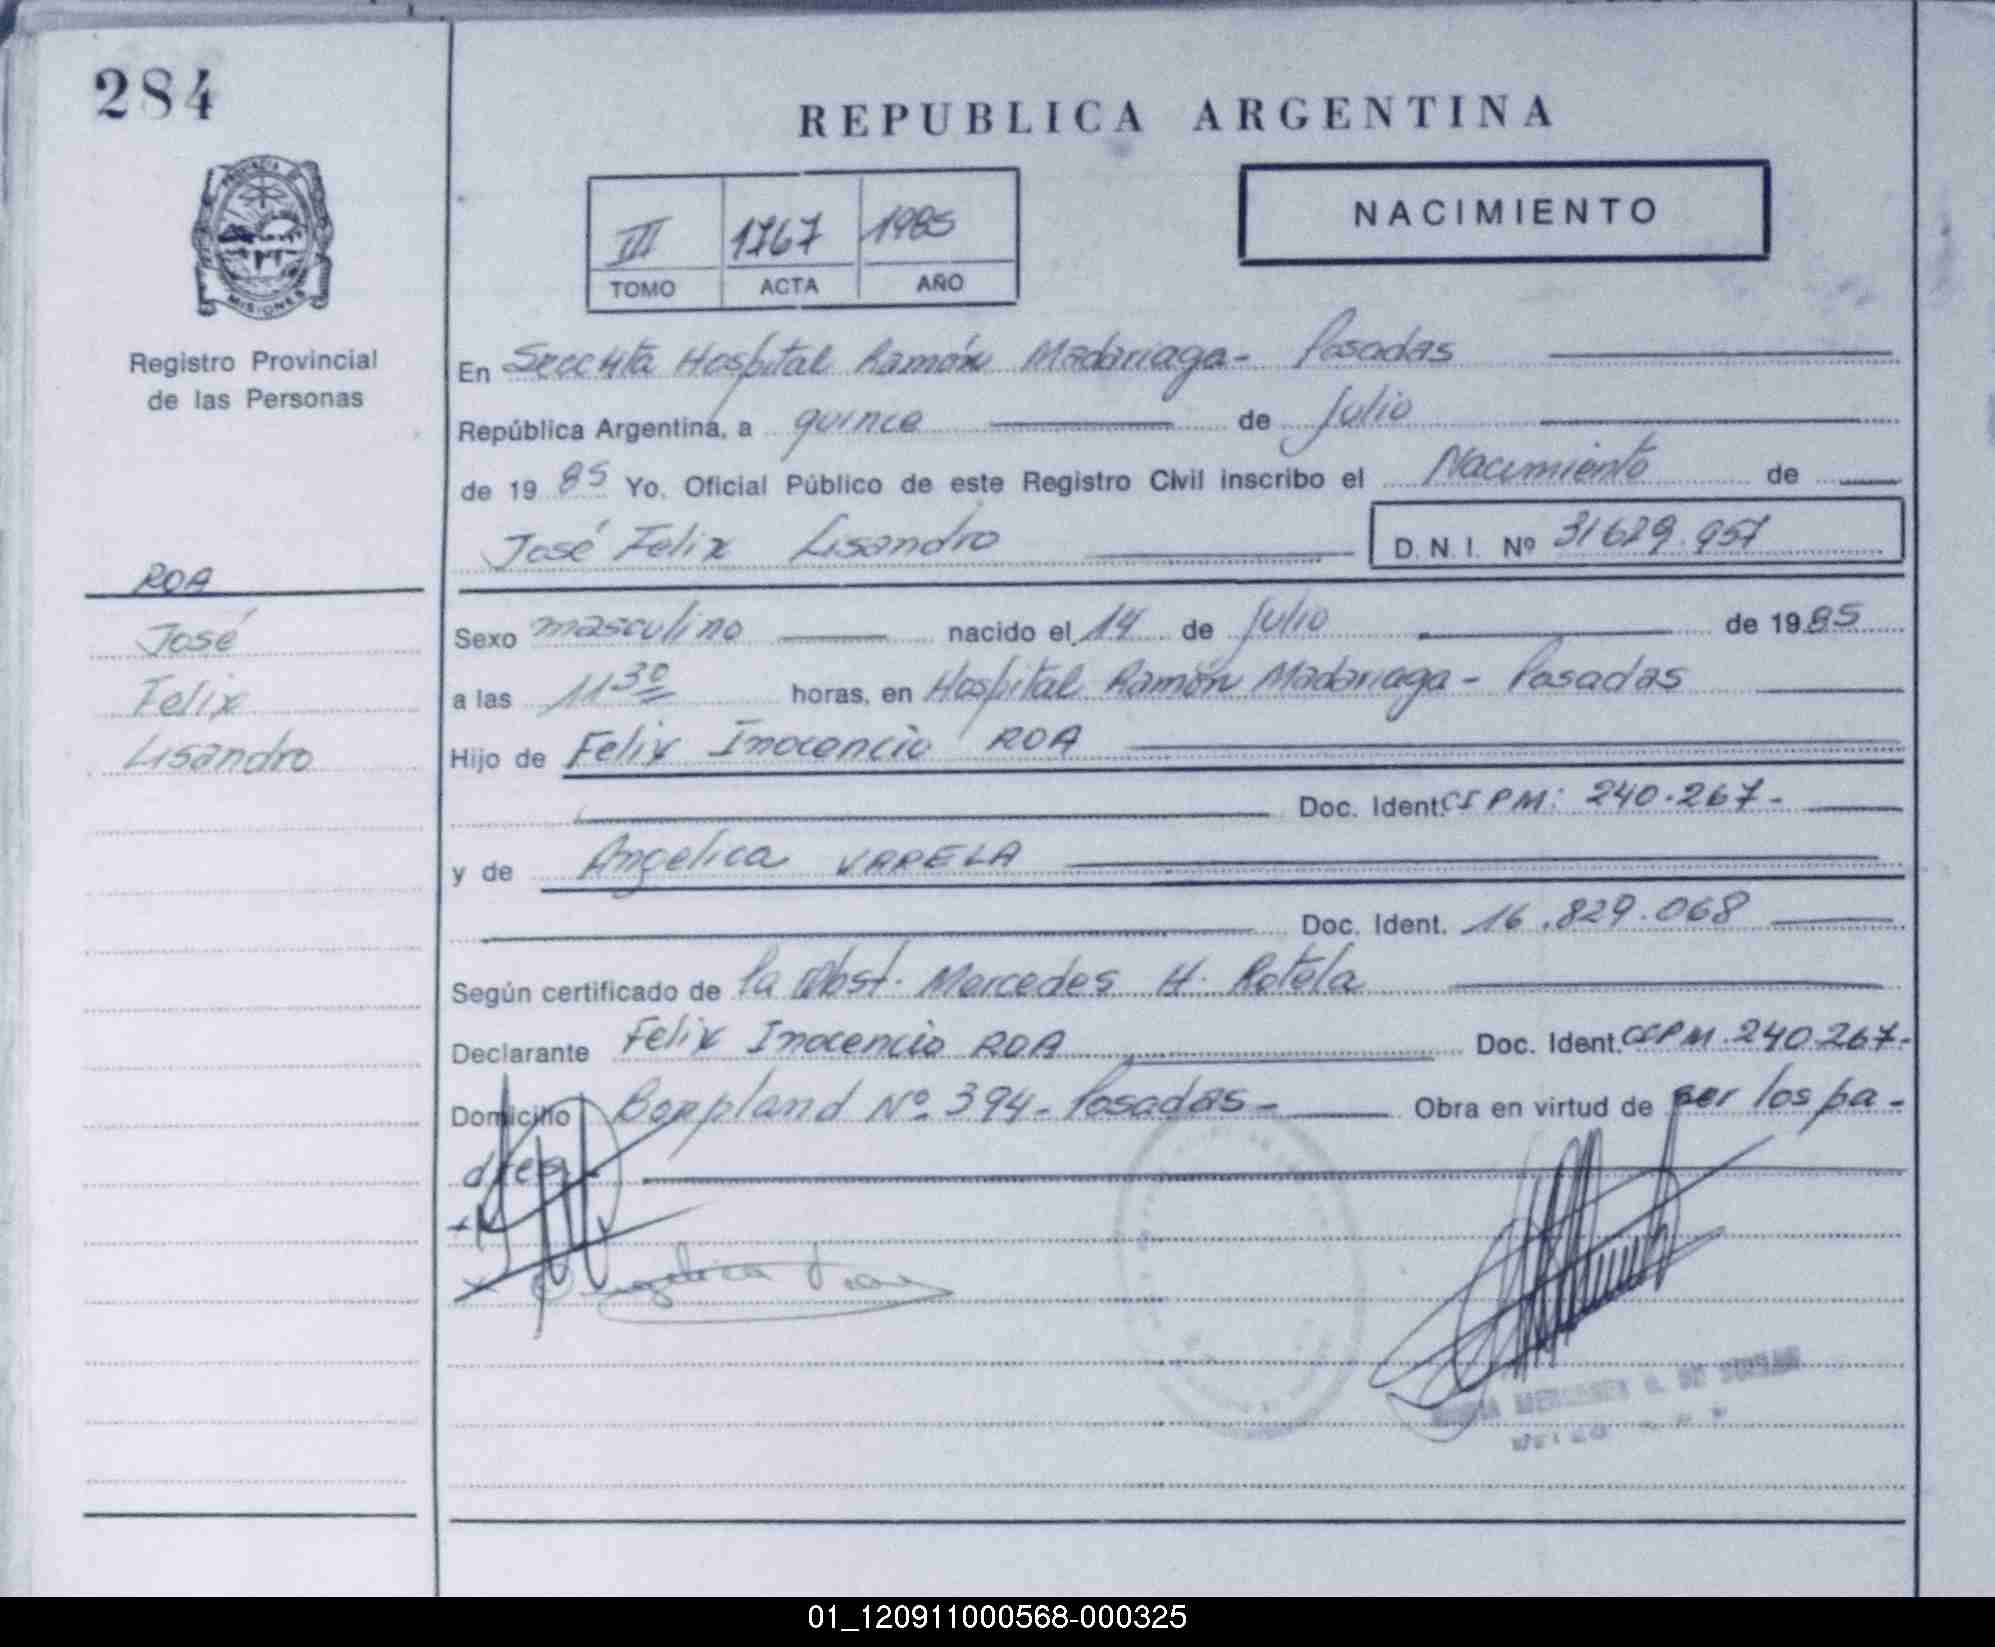 284
PROVINCIA
MISIONES
Registro Provincial
de las Personas
ROA
José
Felix
Lisandro
REPUBLICA ARGENTINA
III 1767 1985
TOMO ACTA AÑO
NACIMIENTO
En Secc 4ta Hospital Ramón Madariaga - Posadas
República Argentina, a quince de Julio
de 19 85 Yo, Oficial Público de este Registro Civil inscribo el Nacimiento de
José Felix Lisandro D. N. I. Nº 31629.957
Sexo masculino nacido el 14 de Julio de 19 85
a las 11 30 horas, en Hospital Ramón Madariaga - Posadas
Hijo de Felix Inocencio ROA
Doc. Ident. CIPM: 240.267-
y de Angelica VARELA
Doc. Ident. 16.829.068
Según certificado de la Obst. Mercedes H. Rotela
Declarante Felix Inocencio ROA Doc. Ident. CIPM. 240.267-
Domicilio Bonpland Nº 394 - Posadas - Obra en virtud de ser los pa-
dres -
Angelica
DE
01_120911000568-000325